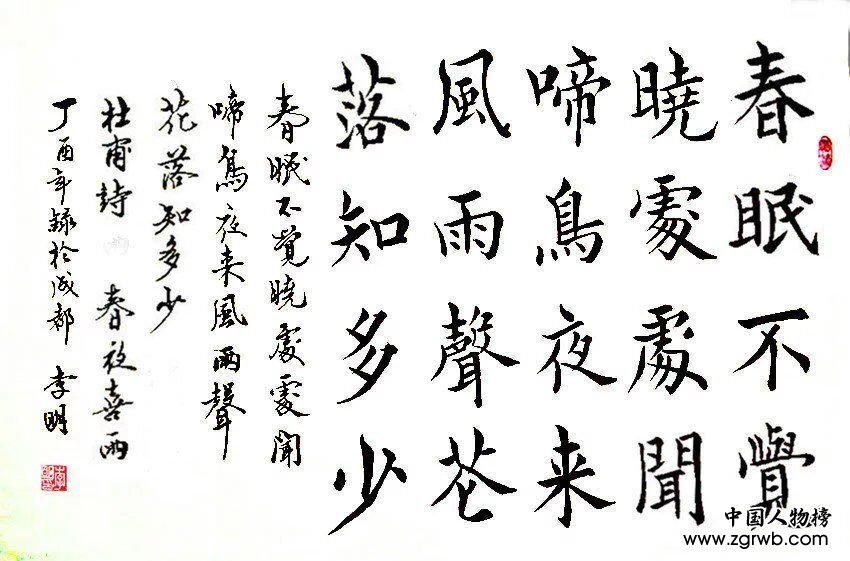 春眠不覺
曉處處聞
啼鳥夜来
風雨聲花
落知多少
春眠不覺曉處處聞
啼鳥夜来風雨聲
花落知多少
杜甫詩 春夜喜雨
丁酉年錄於成都 李明
中国人物榜
www.zgrwb.com